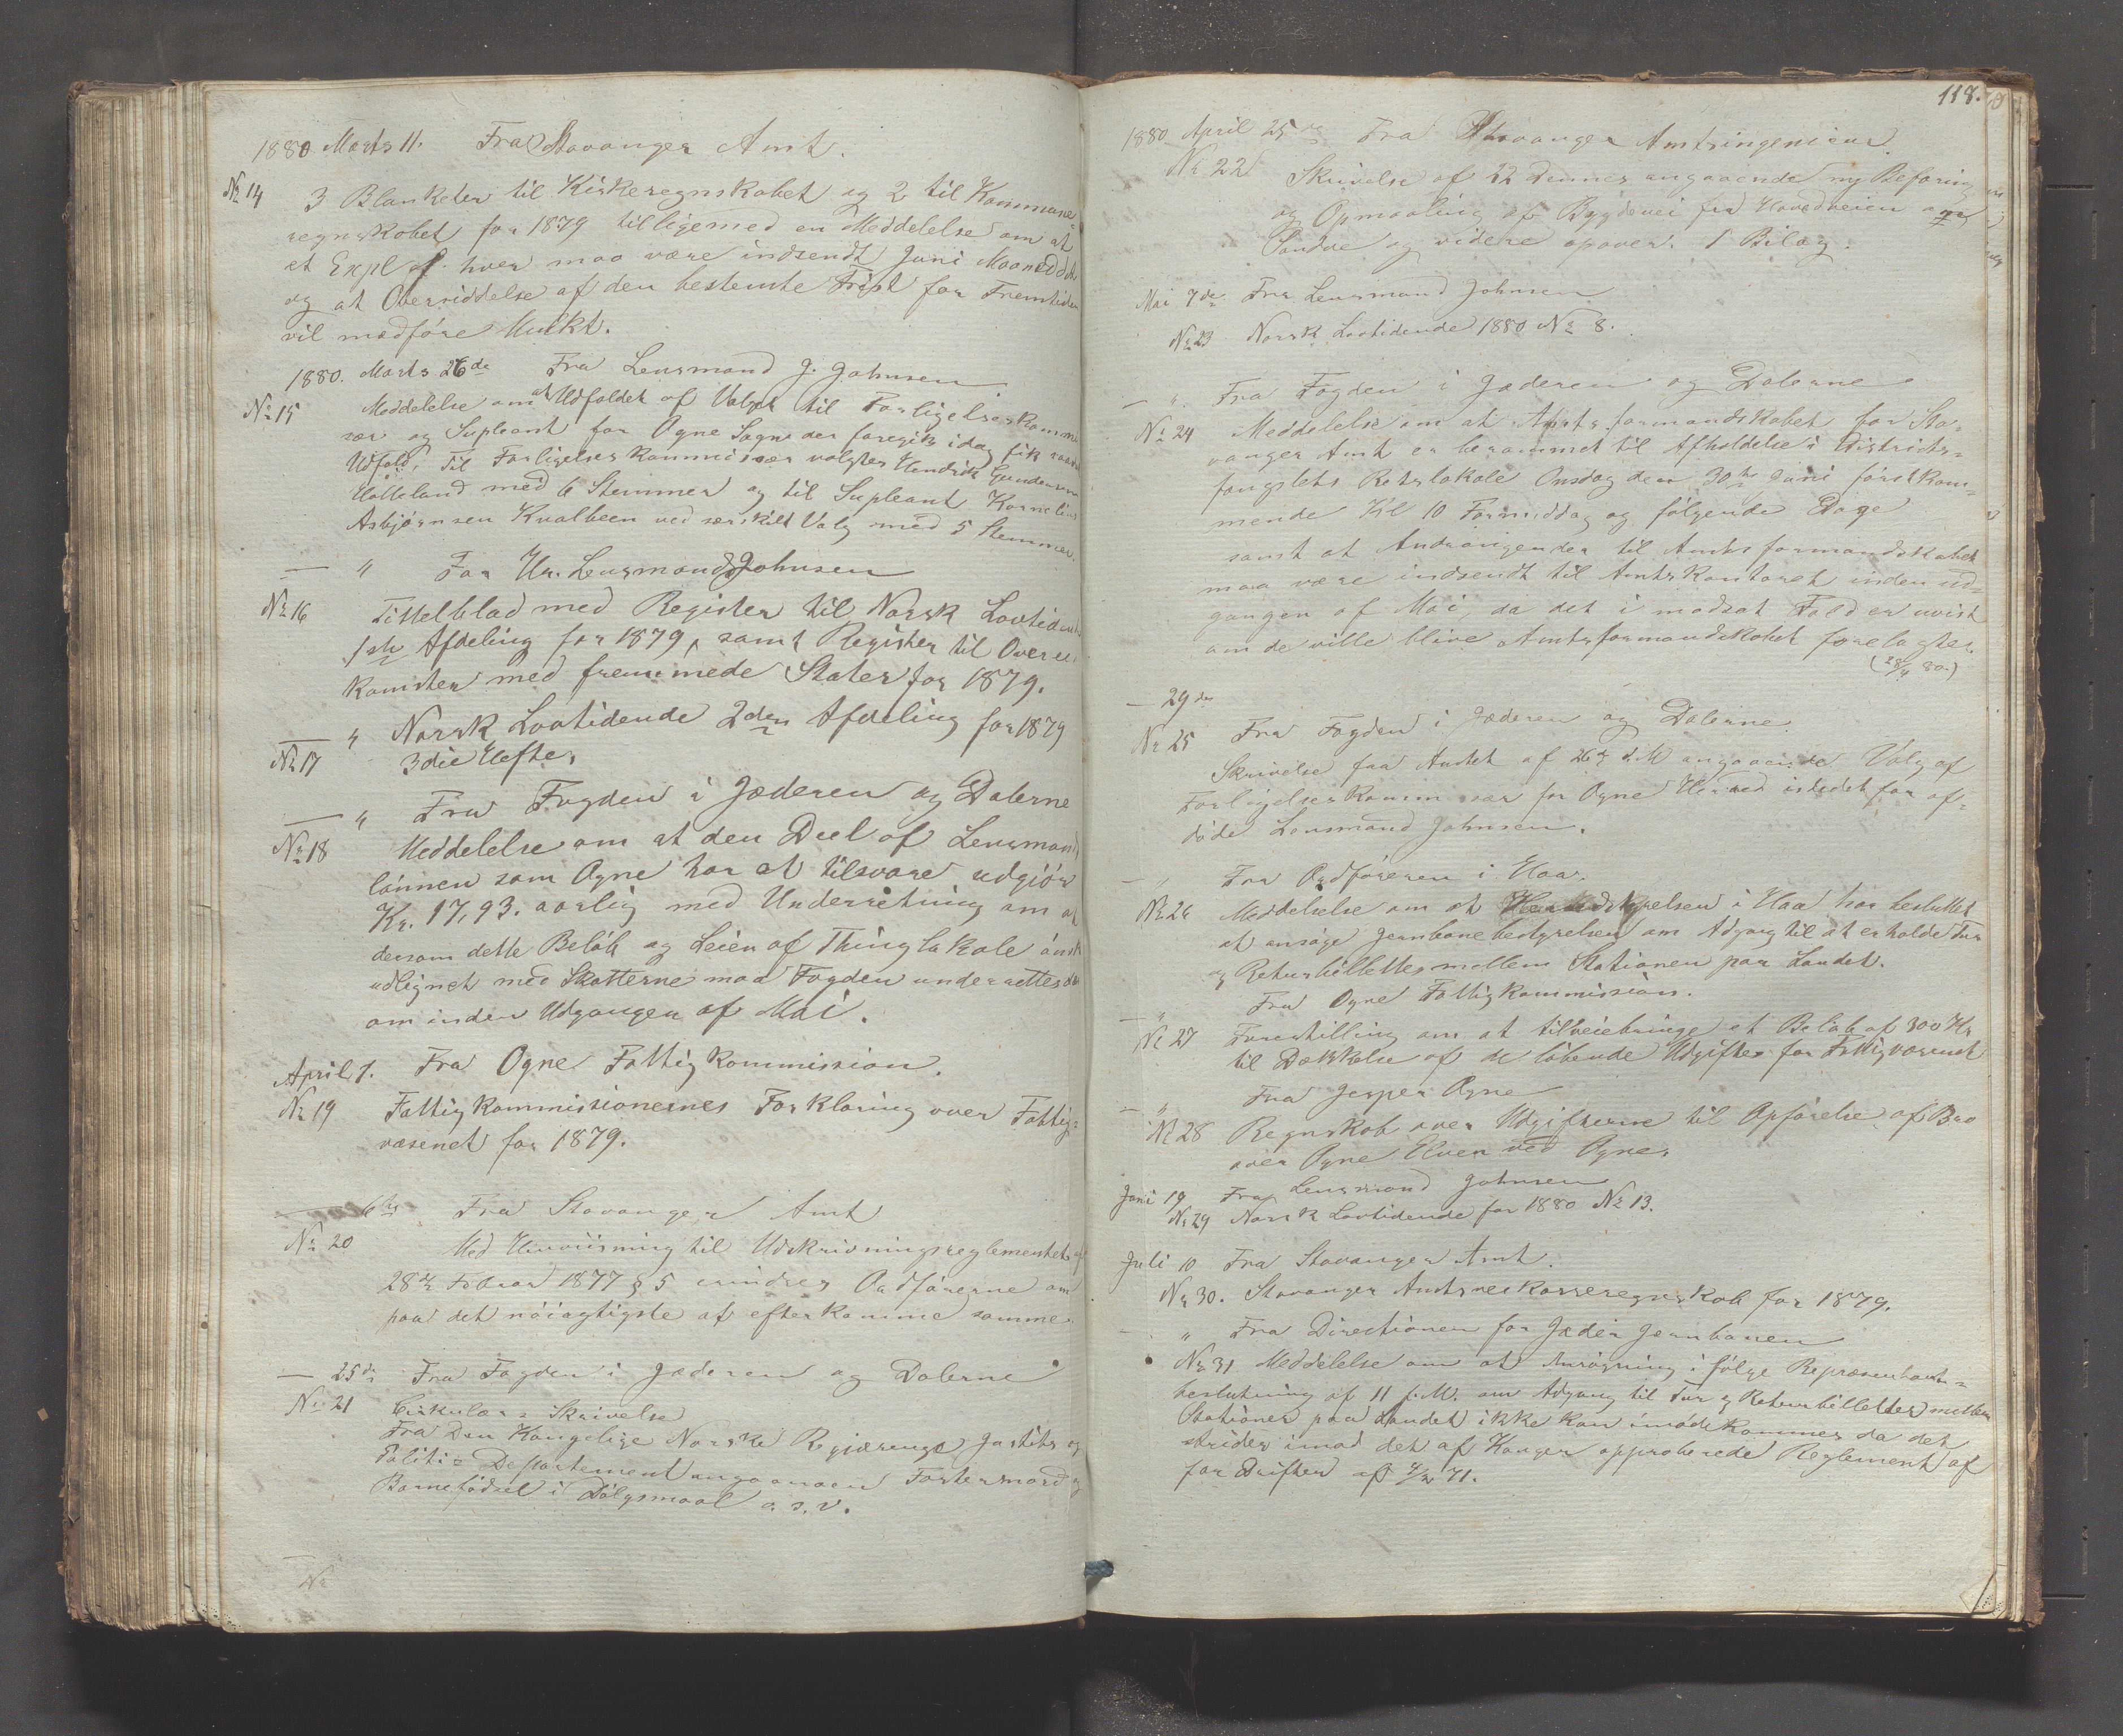 1880 Marts 11. Fra Stavanger Amt.
No 14 3 Blanketer til Kirkeregnskabet og 2 til Kommune
regnskabet for 1879 tilligemed en Meddelelse om at
et Expl af hver maa være indsendt Juni Maaned
og at Overskriddelse af den bestemte Frist for Fremtiden
vil medføre Mulkt.
1880. Marts 26de Fra Lensmand J. Johnsen
No 15 Meddelelse om at Udfaldet af Valget til Forligelseskommis
sær og Supleant for Ogne Sogn der foregik idag fik saadt
Udfald, Til Forligelseskommissær valgtes Hendrik Gundersen
Hølleland med 6 Stemmer og til Supleant Kornelius
Asbjørnsen Kvalbeen ved særskilt Valg med 5 Stemmer.
— " Fra Hr. Lensmand Johnsen
No 16 Tittelblad med Register til Norsk Lovtidende
1ste Afdeling for 1879, samt Register til Overens
komster med fremmede Stater for 1879.
— " Norsk Lovtidende 2den Afdeling for 1879
No 17 3die Hefte.
— " Fra Fogden i Jæderen og Dalerne
No 18 Meddelelse om at den Deel af Lensmands
lønnen som Ogne har at tilsvare udgjør
Kr. 17,93. aarlig med Underretning om at
dersom dette Beløb og Leien af Thinglokale ønsk
udlignet med Skatterne maa Fogden underrettes der
om inden Udgangen af Mai.
April 1. Fra Ogne Fattigkommission.
No 19 Fattigkommissionernes Forklaring over Fattig-
væsenet for 1879.
— 6te Fra Stavanger Amt
No 20 Med Henviisning til Udskrivningsreglementet af
28de Februar 1877 § 5 erindres Ordførerne om
paa det nøiagtigste at efterkomme samme.
— 25de Fra Fogden i Jæderen og Dalerne
No 21 Cirkulær-Skrivelse
Fra Den Kongelige Norske Regjerings Justits og
Politi-Departement angaaende Fostermord og
Barnefødsel i Dølgsmaal o.s.v.
No
118.
1880 April 25de Fra Stavanger Amtsingeniør.
No 22 Skrivelse af 22 Dennes angaaende ny Befaring
og Opmaaling af Bygdevei fra Hovedveien over
Sandve og videre opover. 1 Bilag.
Mai 7de Fra Lensmand Johnsen
No 23 Norsk Lovtidende 1880 No 8.
— " Fra Fogden i Jæderen og Dalerne
No 24 Meddelelse om at Amtsformandskabet for Sta-
vanger Amt er berammet til Afholdelse i Districts-
fængslets Retslokale Onsdag den 30te Juni førstkom-
mende Kl 10 Formiddag og følgende Dage
samt at Andragender til Amtsformandskabet
maa være indsendt til Amtskontoret inden Ud-
gangen af Mai, da det i modsat Fald er uvist
om de ville blive Amtsformandskabet forelagte.
(28/4 80)
— 29de
No 25 Fra Fogden i Jæderen og Dalerne
Skrivelse fra Amtet af 26de d.M angaaende Valg af
Forligelseskommissær for Ogne Herred istedet for af-
døde Lensmand Johnsen.
— " Fra Ordføreren i Haa.
No 26 Meddelelse om at Herredstyrelsen i Haa har besluttet
at ansøge Jernbanebestyrelsen om Adgang til at erholde Tur
og Returbilletter mellem Stationen paa Landet.
— " Fra Ogne Fattigkommission.
No 27 Forestilling om at tilveiebringe et Beløb af 300 Kr
til Dækkelse af de løbende Udgifter for Fattigvæsenet
— " Fra Jesper Ogne
No 28 Regnskab over Udgifterne til Opførelse af Bro
over Ogne Elven ved Ogne.
Juni 19 Fra Lensmand Johnsen
No 29 Norsk Lovtidende for 1880 No 13.
Juli 10 Fra Stavanger Amt.
No 30. Stavanger Amtsveikasseregnskab for 1879.
— " Fra Directionen for Jæder Jernbanen
No 31 Meddelelse om at Ansøgning i følge Repræsentant-
beslutning af 11 f.M. om Adgang til Tur og Returbilletter mellem
Stationer paa Landet ikke kan imødekommes da det
strider imod det af Kongen approberede Reglement af
for Driften af 4/2 71.